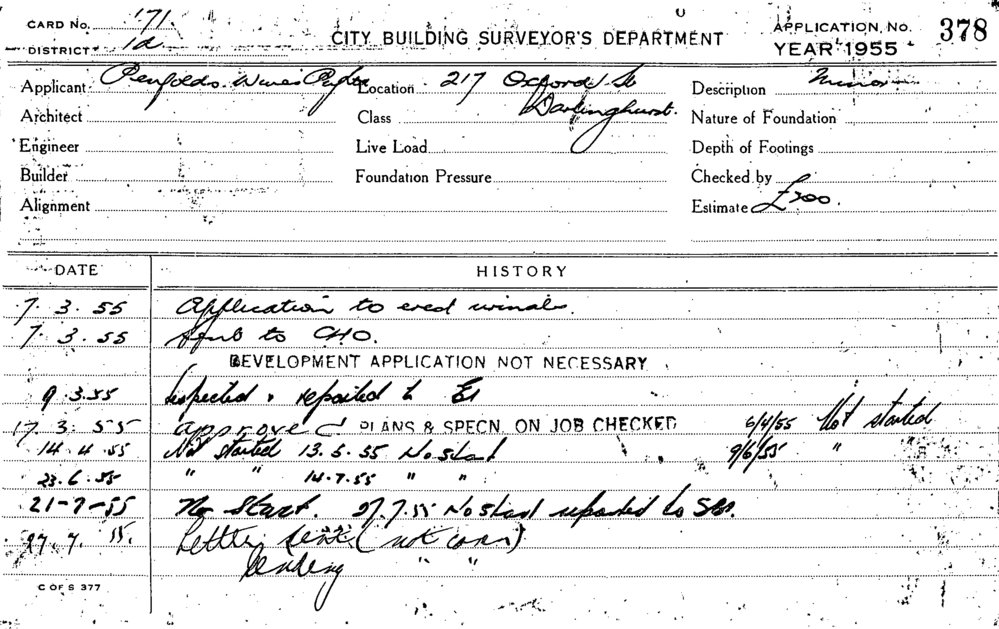 CARD No. 171
DISTRICT 1a
CITY BUILDING SURVEYOR'S DEPARTMENT
APPLICATION No. 378
YEAR 1955
Applicant Penfolds Wines Pty Ltd
Location 217 Oxford St
Darlinghurst.
Description Minor
Architect
Class
Nature of Foundation
Engineer
Live Load
Depth of Footings
Builder
Foundation Pressure
Checked by
Alignment
Estimate £200.
DATE HISTORY
7. 3. 55 Application to erect urinals.
7. 3. 55 Sent to CHO.
DEVELOPMENT APPLICATION NOT NECESSARY
9.3.55 Inspected & reported to
17. 3. 55 approved PLANS & SPECN. ON JOB CHECKED 6/4/55 Not started
14. 4. 55 Not started 13.5.55 No start 9/6/55 "
23.6.55 " " 14.7.55 " "
21-7-55 No Start. 27.7.55 No start reported to SBS.
27.7.55. Letter sent (not
pending " "
C OF S 377